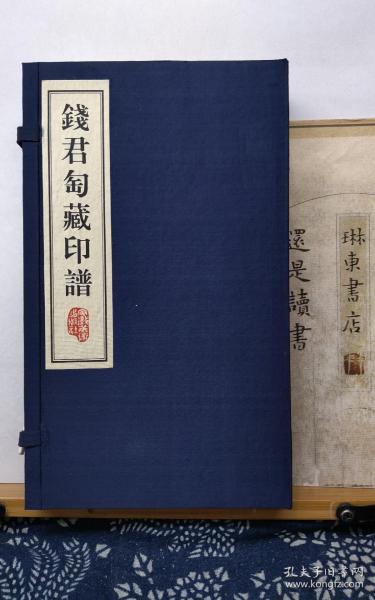 錢君匋藏印譜
琳東書店
還是讀書
孔夫子旧书网